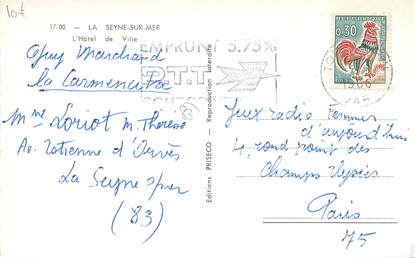 10€
17-00 - LA SEYNE-SUR-MER
L'Hôtel de Ville
Guy Marchand
la Carmencita
Mme Loriot M. Thérèse
Av. Estienne d'Orves
La Seyne s/mer
(83)
EMPRUNT 5.75%
P.T.T
Editions PRISECO - Reproduction interdite
0,30
1966
VAR
Jeux radio Femmes
d'aujourd'hui
4 rond point des
Champs Elysées
Paris
75